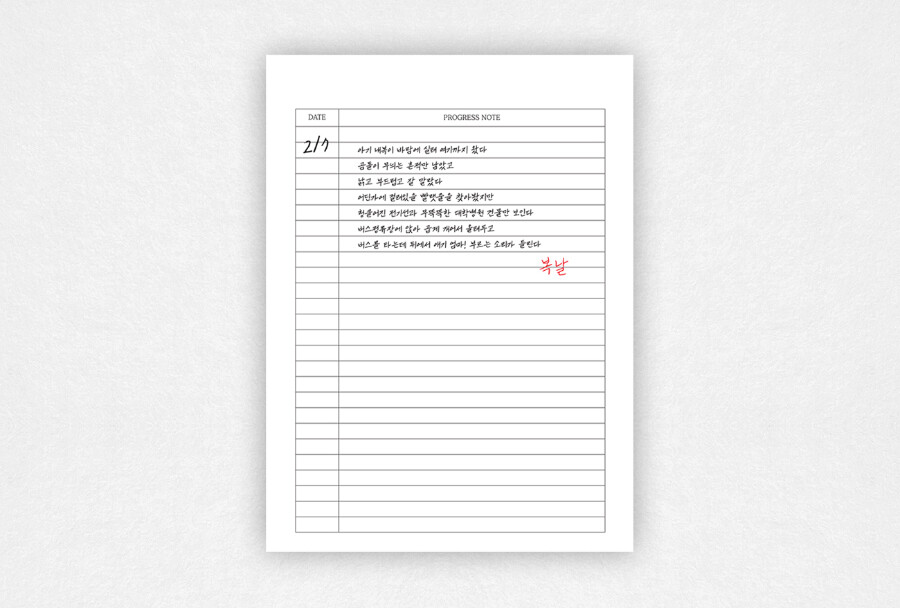 DATE PROGRESS NOTE
2/7 아기 내복이 바람에 실려 여기까지 왔다
곰돌이 무늬는 흔적만 남았고
낡고 부드럽고 잘 말랐다
어딘가에 걸려있을 빨랫줄을 찾아봤지만
헝클어진 전기선과 무뚝뚝한 대학병원 건물만 보인다
버스정류장에 앉아 곱게 개어서 올려두고
버스를 타는데 뒤에서 애기 엄마! 부르는 소리가 들린다
복날